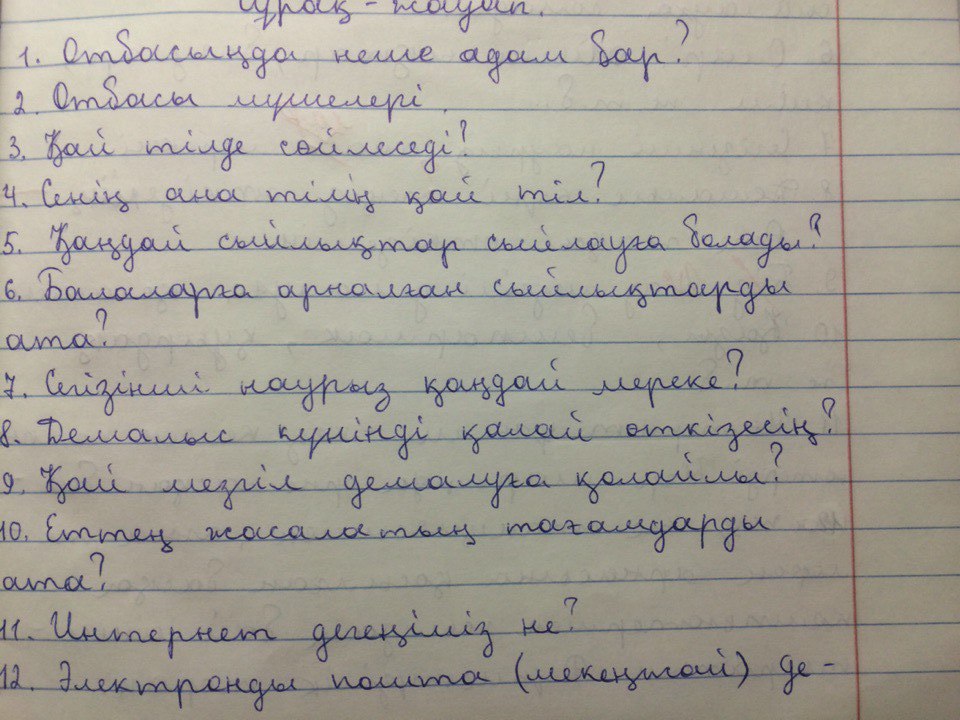 Сұрақ - жауап.
1. Отбасыңда неше адам бар?
2. Отбасы мүшелері.
3. Қай тілде сөйлеседі?
4. Сенің ана тілің қай тіл?
5. Қаңдай сыйлықтар сыйлауға болады?
6. Балаларға арналған сыйлықтарды
ата?
7. Сегізінші наурыз қаңдай мереке?
8. Демалыс күнінді қалай өткізесің?
9. Қай мезгіл демалуға қолайлы?
10. Еттең жасалатың тағамдарды
ата?
11. Интернет дегеңіміз не?
12. Электронды пошта (мекеңжай) де-